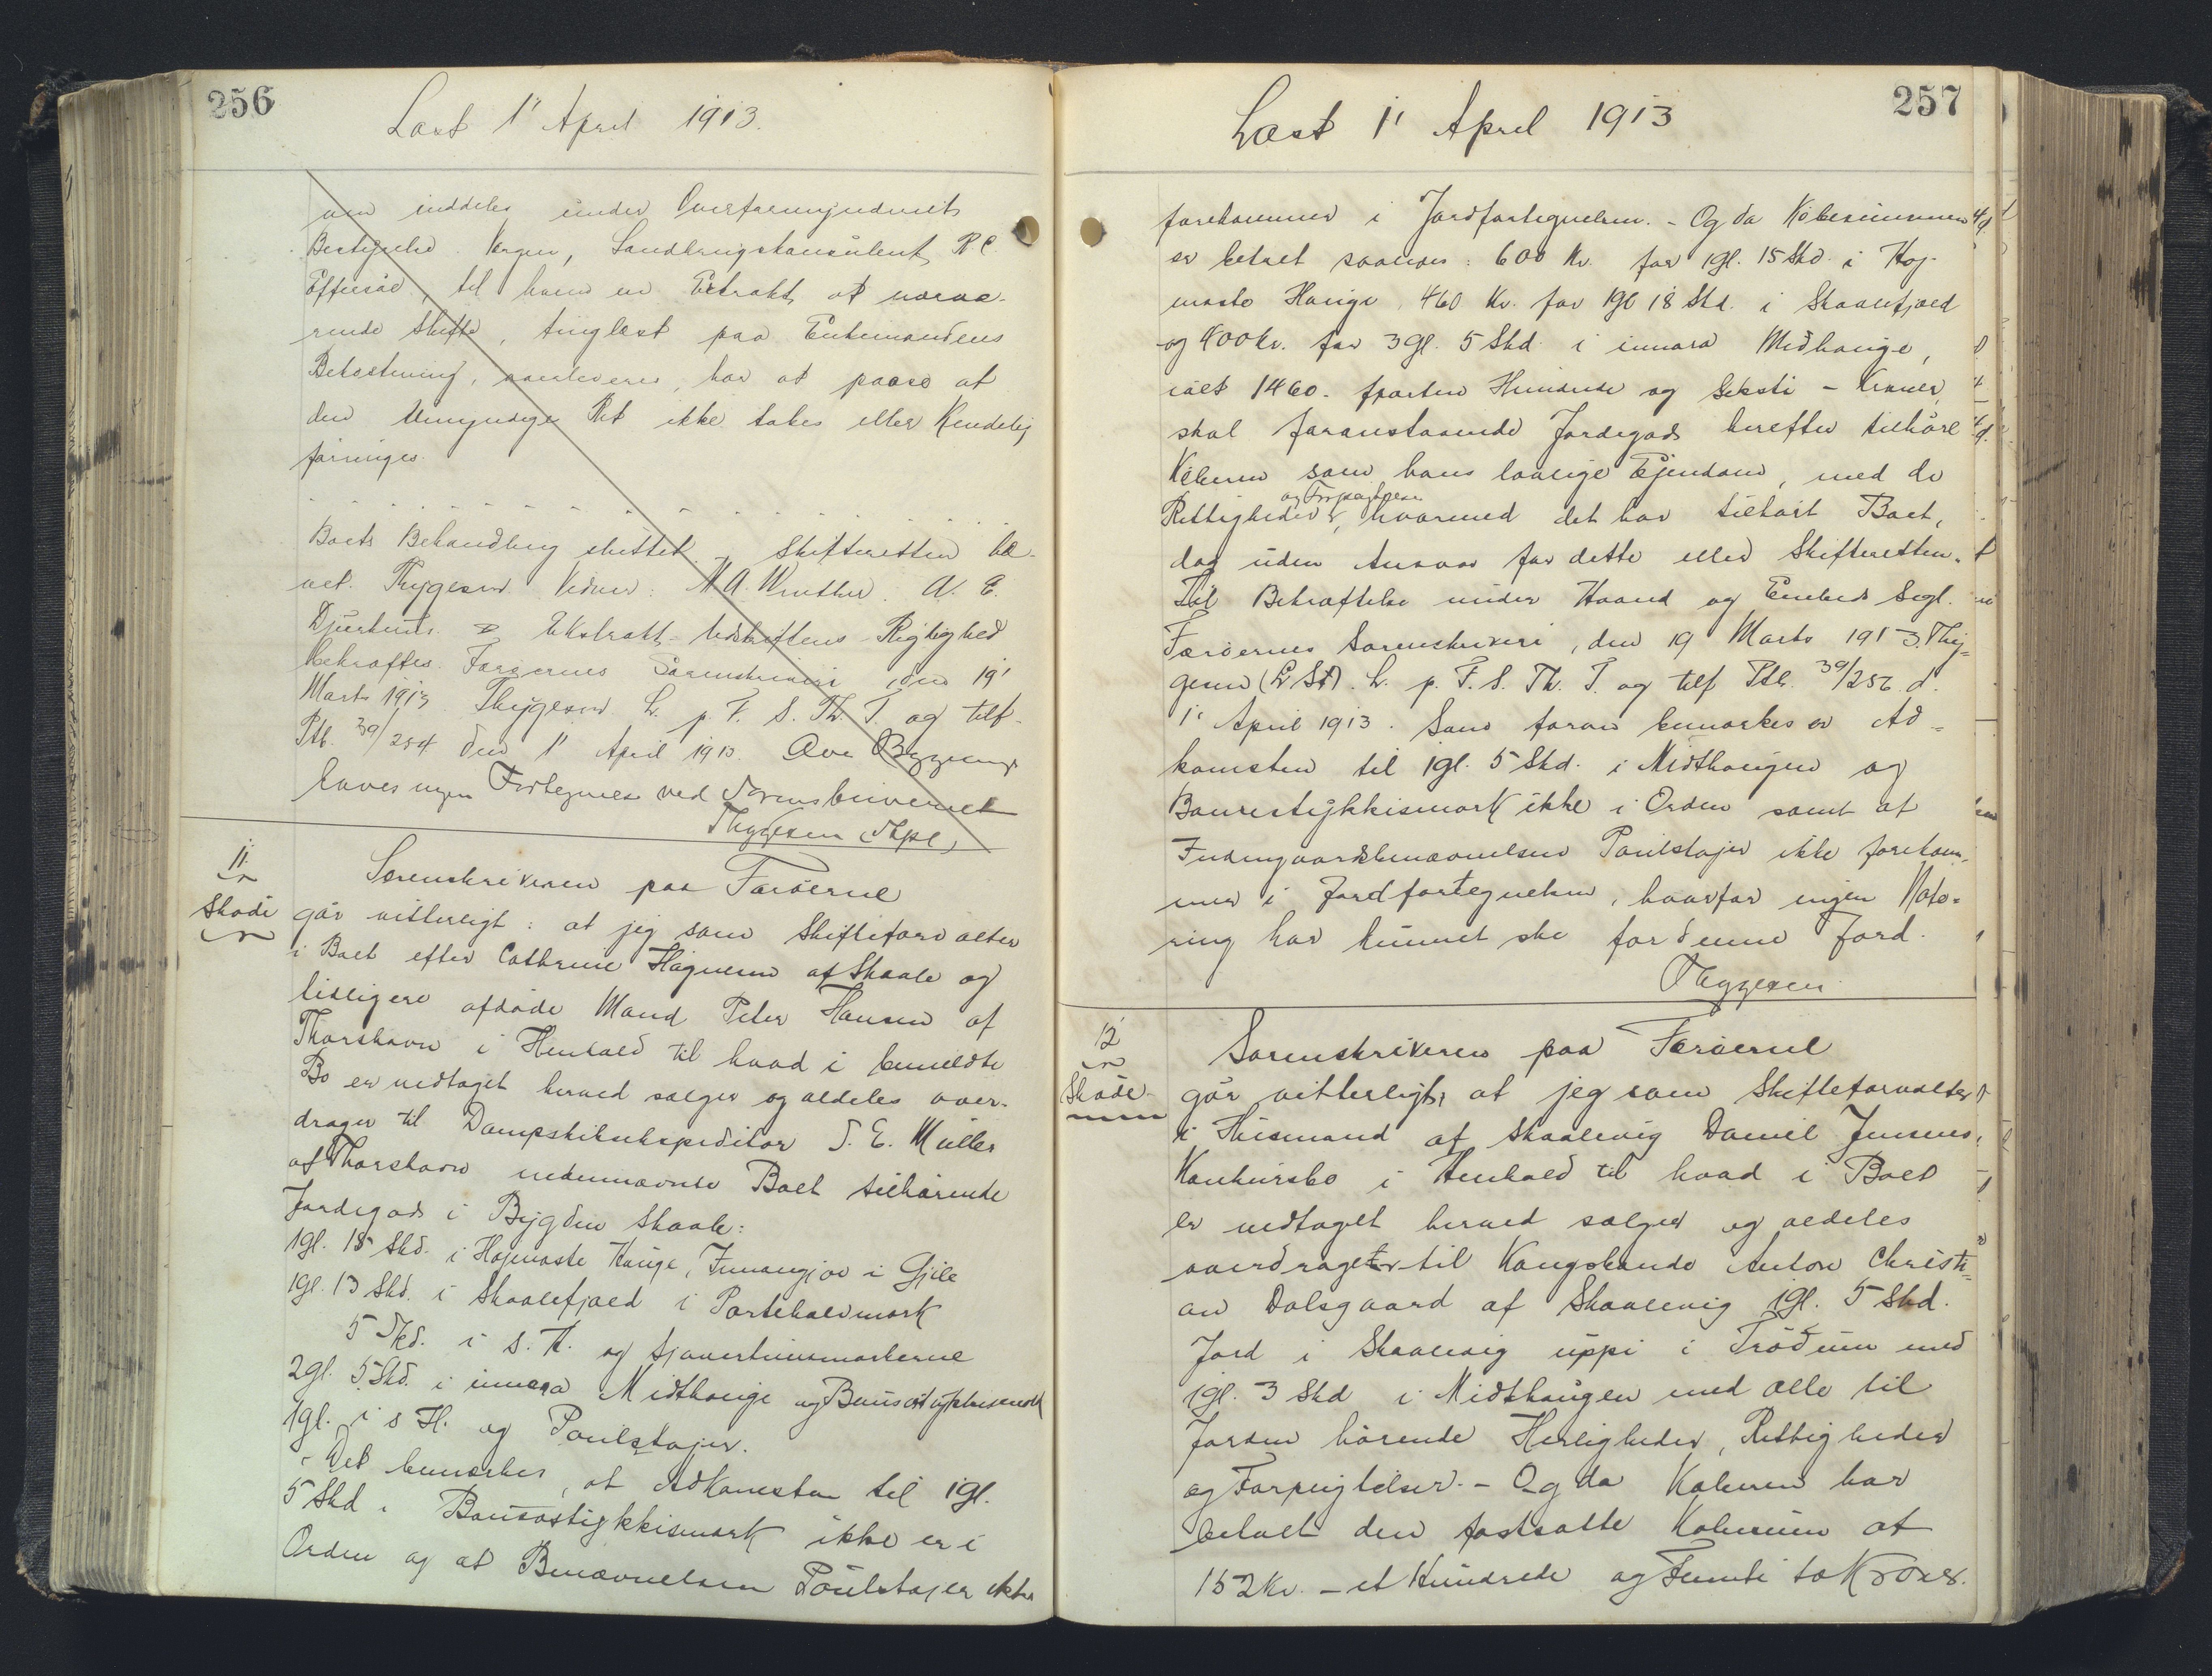 256
Læst 1' April 1913.
inddeles under Overformynderiets
Bestyrelse. Værgen, Landbrugskonsulent R. C.
Effersøe, til hvem en Extrakt af nærvæ-
rende Skifte, tinglæst paa Enkemandens
Bekostning, har at paase at
den Umyndiges Ret ikke tabes eller Kendelig
foringes.
Boets Behandling sluttet. Skifteretten hæ-
vet. Thygesen Vidner: M. A. Winther. A. E.
Djurhuus. Ekstrakt-Udskriftens Rigtighed
bekræftes. Færøernes Sorenskriveri, den 19'
Marts 1913 Thygesen L. p. F. S. Th. T. og tilf.
Ptb. 39/254 den 1' April 1913. Ove Bygning
haves ingen Fortegnelse ved Sorenskriveriet
Thygesen
11
Skøde
Sorenskriveren paa Færøerne
gør vitterligt: at jeg som Skifteforvalter
i Boet efter Cathrine Høgnesen af Skaale og
tidligere afdøde Mand Peter Hansen af
Thorshavn i Henhold til hvad i bemeldte
Bo er vedtaget herved sælger og aldeles over-
drager til Dampskibsexpeditør S. E. Müller
af Thorshavn nedennævnte Boet tilhørende
Jordegods i Bygden Skaale:
1 gl. 15 Skd. i Højmaste Hauge, Innangjov i Gjile
1 gl. 13 Skd. i Skaalefjæld i Partehalvmark
5 Skd. i s. H. og
2 gl. 5 Skd. i innara Midthauge og
1 gl. i s H. og Poulstojer.
- Det bemærkes, at Adkomsten til 1 gl.
5 Skd. i Baurastykkismark ikke er i
Orden og at Benævnelsen Poulstojer ikke
257
Læst 1' April 1913
forekommer i Jordfortegnelsen. - Og da Købesummen
er betalt saaledes: 600 Kr. for 1 gl. 15 Skd. i Høj-
maste Hauge, 460 Kr. for 1 gl 18 Skd. i Skaalefjæld
og 400 kr. for 3 gl. 5 Skd. i innara Midhauge,
ialt 1460. fjorten Hundrede og Seksti - Kroner,
skal foranstaaende Jordegods herefter tilhøre
Køberen som hans lovlige Ejendom, med de
Rettigheder og Forpligtelser, hvormed det har tilhørt Boet,
dog uden Ansvar for dette eller Skifteretten.
Til Bekræftelse under Haand og Embeds Segl.
Færøernes Sorenskriveri, den 19 Marts 1913. Thy-
gesen (L. S.). L. p. F. S. Th. T. og tilf Ptb. 39/256 d.
1' April 1913. Som foran bemærkes er Ad-
komsten til 1 gl. 5 Skd. i Midthaugen og
Baurastykkismark ikke i Orden samt at
Indengaardsbenævnelsen Poulstojer ikke forekom-
mer i Jordfortegnelsen, hvorfor ingen Note-
ring har kunnet ske for denne Jord.
Thygesen
12
Skøde
Sorenskriveren paa Færøerne
gør vitterligt, at jeg som Skifteforvalter
i Husmand af Skaalevig Daniel Jensens
Konkursbo i Henhold til hvad i Boet
er vedtaget herved sælger og aldeles
overdrager til Kongsbonde Anton Christi-
an Dalsgaard af Skaalevig 1 gl. 5 Skd.
Jord i Skaalevig uppi i Trødum med
1 gl. 3 Skd i Midthaugen med alle til
Jorden hørende Herligheder, Rettigheder
og Forpligtelser. - Og da Køberen har
betalt den fastsatte Købesum af
152 Kr. - et Hundrede og Femti to Kroner.